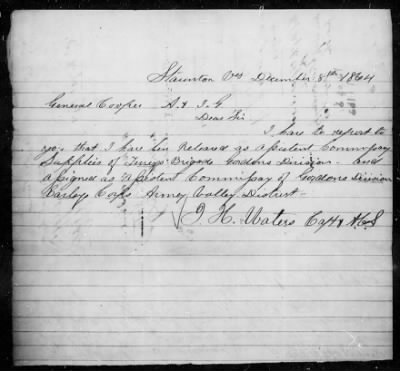 Staunton Va December 8th 1864
General Cooper A & I G
Dear Sir
I have to report to
you that I have been Released as assistent Commissary
Supplies of Terrys Brigade Gordons Division and
assigned as Assistent Commissary of Gordons Division
Earlys Corps Army Valley District
J. H. Waters Capt & A.C.S